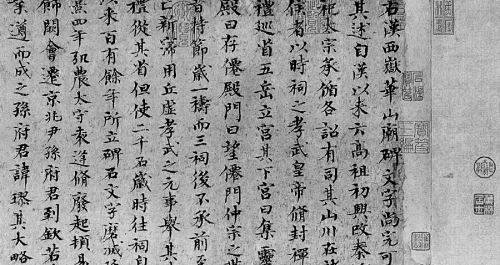 右漢西嶽華山廟碑文字尚完可
其述自漢以來云高祖初興改秦
祀太宗承循各詔有司其山川在
侯者以時祠之孝武皇帝脩封禪
禮巡省五岳立宮其下宮曰集靈
殿曰存僊殿門曰望僊門仲宗之世
者持節歲一禱而三祠後不承前至
亡新寖用丘虛孝武之元事舉其
禮從其省但使二千石歲時往祠自
以來百有餘年所立碑石文字磨滅
熹四年弘農太守袁逢脩廢起頓易
飾闕會遷京兆尹孫府君到欽若
業遵而成之孫府君諱璆其大略